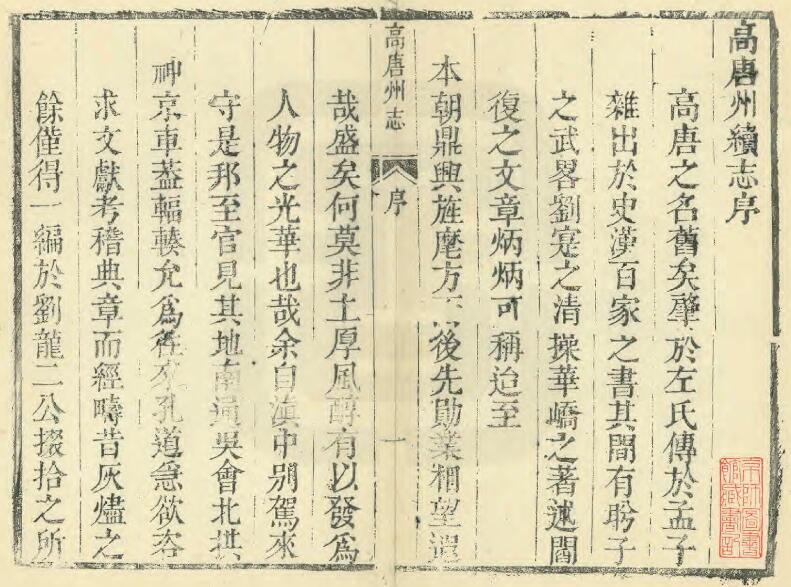 高唐州續志序
高唐之名舊矣肇於左氏傳於孟子
雜出於史漢百家之書其間有盼子
之武畧劉寔之清操華嶠之著述閻
復之文章炳炳可稱迨至
本朝鼎興旌麾方後先勛業相望遐
高唐州志
序
一
哉盛矣何莫非土厚風醇有以發爲
人物之光華也哉余自滇中别駕來
守是邦至官見其地南通吳會北拱
神京車葢輻輳允爲徃來孔道急欲咨
求文獻考稽典章而經疇昔灰燼之
餘僅得一編於劉龍二公掇拾之所